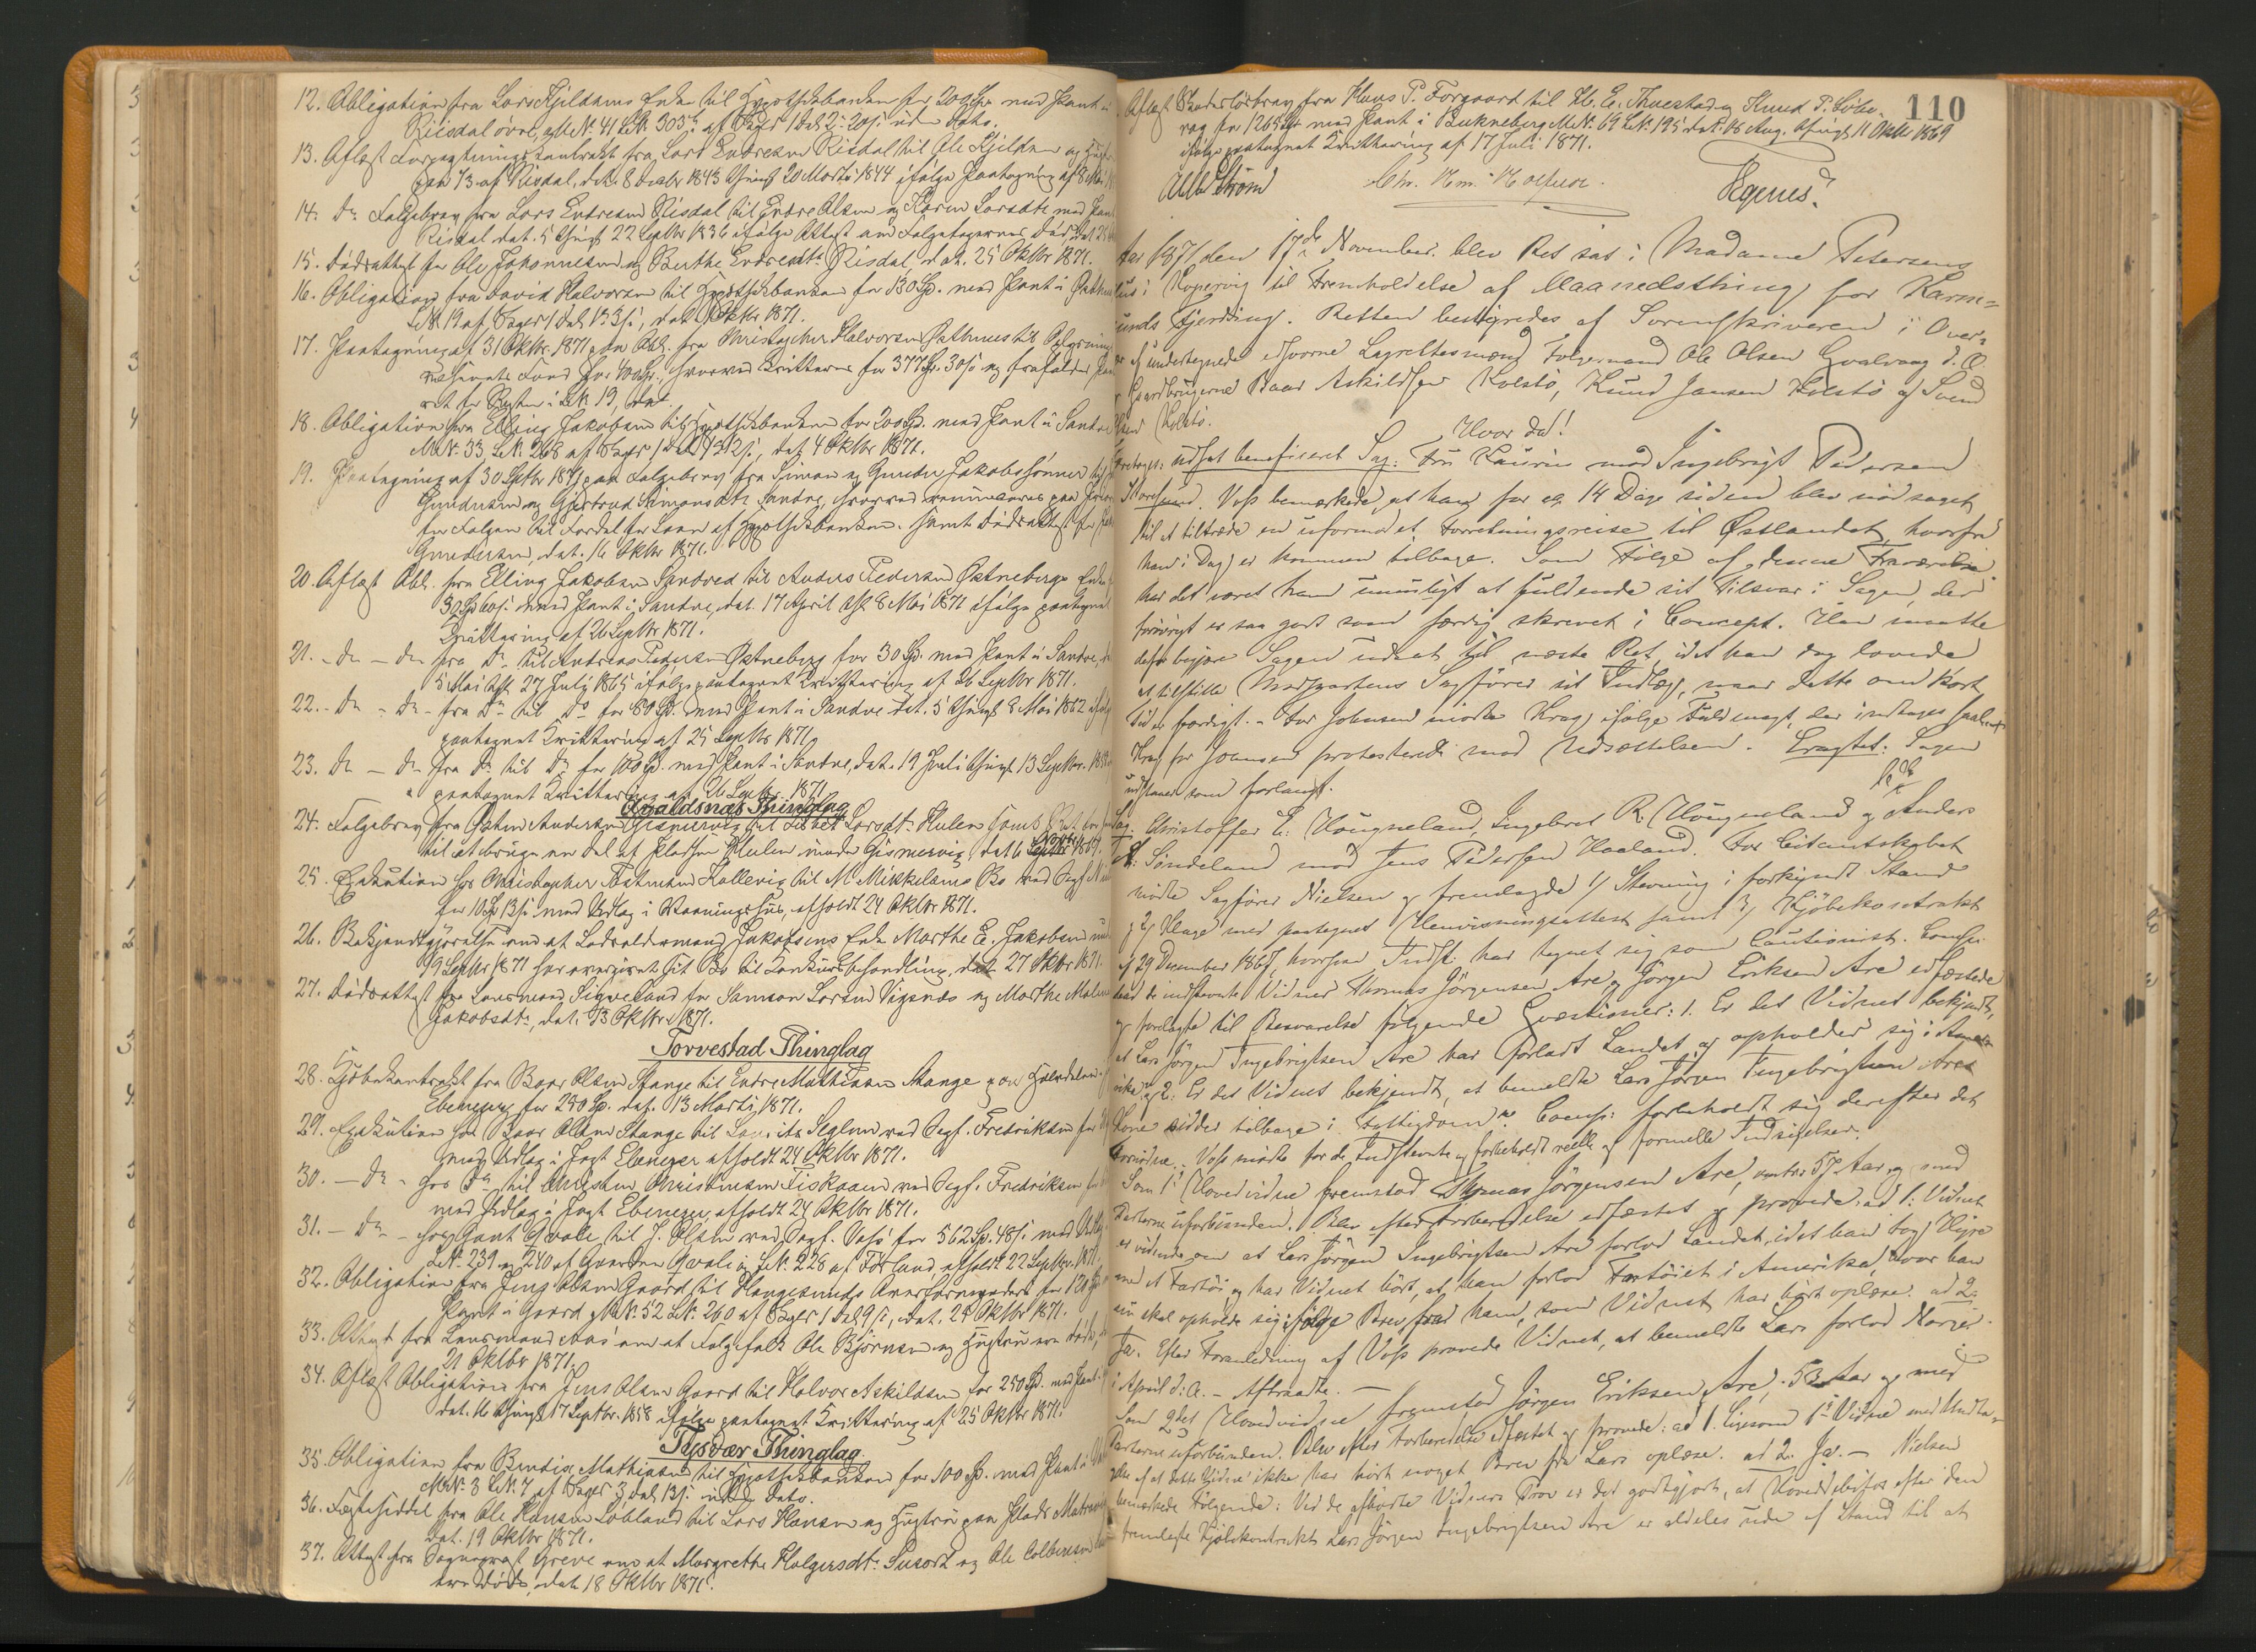 12. Obligation fra Lars Kjeldsens Enke til Hypothekbanken for 209 Spd. med Pant i
Riisdal øvre, M.No. 41 L.No. 303 af Skyld 1 Dal. 2 20 s. uden Dato.
13. Aflæst Forpagtningskontrakt fra Lars Endresen Risdal til Ole Kjeldsen og Hustru
paa 1/3 af Risdal, dat. 8 Decbr 1843 thingl. 20 Marts 1844 ifølge Paategning af 8
14. Do Folgebrev fra Lars Endresen Risdal til Endre Olsen og Karen Larsdtr med Pant
Risdal dat. 5 thingl. 22 Septbr 1836 ifølge Attest om Folgetagernes Død, dat. 25
15. Dødsattest for Ole Johannesen og Berthe Endresdtr. Risdal, dat. 25 Oktbr 1871.
16. Obligation fra David Halvorsen til Hypothekbanken for 130 Sp. med Pant i
L.No. 19 af Skyld 1 Dal. 1 3 s., dat. Oktbr 1871.
17. Paategning af 31 Oktbr. 1871 paa Obl. fra Christopher Halvorsen Østhuus til Oplysnings
væsenets Fond for 400 Sp., hvorved kvitteres for 377 Sp. 30 s. og frafaldes Pan
ret for Resten i L.No. 19,
18. Obligation fra Elling Jakobsen til Hypothekbanken for 200 Sp. med Pant i Sandve
M.No. 33, L.No. 268 af Skyld 1 Dal. 1 3 12 s., dat. 4 Oktbr 1871.
19. Paategning af 30 Septbr 1871 paa Folgebrev fra Simon og Gunder Jakobssønner til
Gundersen og Gjertrud Simonsdtr. Sandve, hvorved renunceres paa Prior
for Folgen til Fordel for Laan af Hypothekbanken. Samt Dødsattest for
Gundersen, dat. 16 Oktbr 1871.
20. Aflæst Obl. fra Elling Jakobsen Sandved til Anders Pedersen Østneberg Enke
30 Sp. 60 s. med Pant i Sandve, dat. 17 April thl. 8 Mai 1871 ifølge paategnet
Kvittering af 26 Septbr 1871.
21. - Do - Do fra Do til Andreas Pedersen Østneberg for 30 Sp. med Pant i Sandve,
5 Mai thl. 27 July 1865 ifølge paategnet Kvittering af 26 Septbr 1871.
22. - Do - Do - fra Do til Do for 80 Sp. med Pant i Sandve dat. 5 thingl. 8 Mai 1862
paategnet Kvittering af 25 Septbr 1871.
23. Do - Do fra Do til Do for 100 Sp. med Pant i Sandve, dat. 19 Juli thingl. 13 Septbr.
paategnet Kvittering af 26 Septbr. 1871.
Avaldsnæs Thinglag
24. Folgebrev fra Østen Andersen Gismervig til Lisbet Larsdtr. Hulen samt Ret for
til at bruge en Del af Pladsen Hulen under Gismervig, dat. 6 1869.
25. Exekution hos Christopher Østensen Kallevig til M. Mikkelsens Bo ved Sagf.
for 10 Sp. 13 s. med Udlæg i Vaaningshus, afholdt 24 Oktbr 1871.
26. Bekjendtgjørelse om at Lodsoldermand Jakobsens Enke Marthe E. Jakobsen
19 Septbr 1871 har overgivet sit Bo til Konkursbehandling, dat. 27 Oktbr 1871.
27. Dødsattest fra Lensmand Sigveland for Samson Larsen Vignæs og Marthe Malene
Jakobsdtr., dat. 13 Oktbr 1871.
Torvestad Thinglag
28. Kjøbekontrakt fra Baar Olsen Stange til Endre Mathiasen Stange paa Halvdelen
Ebenezer for 250 Sp. dat. 13 Marts 1871.
29. Exekution hos Baar Olsen Stange til Seglem ved Sagf. Fredriksen for
med Udlæg i Jagt Ebenezer, afholdt 24 Oktbr 1871.
30. - Do - hos Do til Christen Christensen Fiskaaen ved Sagf. Fredriksen for
med Udlæg i Jagt Ebenezer, afholdt 24 Oktbr 1871.
31. - Do - hos Gaut Qvale til J. Olsen ved Sagf. Voss for 562 Sp. 48 s. med Udlæg
L.No. 239 og 240 af Gaarden Qvale og L.No. 226 af Førland, afholdt 22 Septbr. 1871.
32. Obligation fra Jens Olsen Gaard til Haugesunds Overformynderi for 120 Sp.
Pant i Gaard M.No. 52 L.No. 260 af Skyld 1 Dal. 9 s., dat. 24 Oktbr 1871.
33. Attest fra Lensmand Aas om at Folgefolk Ole Bjørnsen og Hustru ere døde,
21 Oktbr 1871.
34. Aflæst Obligation fra Jens Olsen Gaard til Halvor Askildsen for 250 Sp. med Pant i
dat. 16 thingl. 17 Septbr. 1858 ifølge paategnet Kvittering af 25 Oktbr 1871.
Tysvær Thinglag
35. Obligation fra Bendix Mathiasen til Hypothekbanken for 100 Sp. med Pant i
M.No. 3 L.No. 7 af Skyld 3 Dal. 13 s. uden Dato.
36. Fæsteseddel fra Ole Hansen Løbland til Lars Hansen og Hustru paa Plads
dat. 19 Oktbr 1871.
37. Attest fra Sogneprest Greve om at Margrethe Holgersdtr. Susort og Ole Colbensen
ere døde, dat. 18 Oktbr 1871.
110
Aflæst Skadesløsbrev fra Klaus P. Torgaard til Kl. E. Thuestad og Knud P. Lide-
vag for 1265 Sp. med Pant i Bukneberg M.No. 69 L.No. 195 dat. 26 Aug. thingl. 11 Oktbr 1869
ifølge paategnet Kvittering af 17 Juli 1871.
Ström
Egenes.
Aar 1871 den 17de November blev Ret sat i Madame Petersens
Hus i Kopervig til Fremholdelse af Maanedsthing for Karm=
sunds Fjerding. Retten betjentes af Sorenskriveren i Over=
vær af undertegnede edsvorne Lagrettesmænd Folgemand Ole Olsen Gvalvaag d. A.
Gaardbrugerne Baar Askildsen Kolstø, Knud Jansen Kolstø og Svend
Olsen Kolstø.
Hvor da!
Foretoges: udsat beneficeret Sag: Fru Laurin mod Ingebrigt Pedersen
Skaresund. Voss bemærkede, at han for ca. 14 Dage siden blev nødsaget
til at tiltræde en uformodet Forretningsreise til Østlandet, hvorfra
han i Dag er kommen tilbage. Som Følge af denne Fraværelse
har det været ham umuligt at fuldende sit Tilsvar i Sagen, der
forøvrigt er saa godt som færdig skrevet i Concept. Han maatte
derfor begjære Sagen udsat til næste Ret, idet han dog lovede
at tilstille Modpartens Sagfører sit Indlæg, naar dette om kort
Tid er færdigt. - For Johnsen mødte Krag ifølge Fuldmagt, der indtages
Krag for Johnsen protesterede mod Udsættelsen. Eragtet: Sagen
udstaaer som forlangt.
Sag: Christoffer L. Haugneland, Ingebret R. Haugneland og Anders
Sindeland mod Jens Pedersen Haaland. For Citantskabet
mødte Sagfører Nielsen og fremlagde 1/ Stevning i forkyndt Stand
og 2/ Klage med paategnet Henvisningsattest samt 3/ Kjøbekontrakt
af 29 December 1867, hvorpaa Indst. har tegnet sig som Cautionist. Comp.
lod de indstevnte Vidner Thomas Jørgensen Are og Jørgen Eriksen Are edfæstede
og forelagde til Besvarelse følgende Qvæstioner: 1. Er det Vidnet bekjendt,
at Lars Jørgen Ingebrigtsen Are har forladt Landet og opholder sig i Ame-
rika, og 2: Er det Vidnet bekjendt, at bemeldte Lars Jørgen Ingebrigtsen Ares
Kone sidder tilbage i Fattigdom? Comp. forbeholdt sig derefter det
Fornødne. Voss mødte for de Indstevnte og forbeholdt reelle og formelle Indsigelser.
Som 1ste Hovedvidne fremstod Thomas Jørgensen Are, omtr. 57 Aar og med
Parterne uforbunden. Blev efter Forberedelse edfæstet og provede: ad 1: Vidnet
er vidende om at Lars Jørgen Ingebrigtsen Are forlod Landet, idet han tog Hyre
med et Fartøi og har Vidnet hørt, at han forlod Fartøiet i Amerika, hvor han
nu skal opholde sig ifølge Brev fra ham, som Vidnet har hørt oplæse. ad 2:
Ja. Efter Foranledning af Voss provede Vidnet, at bemeldte Lars forlod Norge
i April d. A. - Aftraadte. -
Som 2det Hovedvidne fremstod Jørgen Eriksen Are, 53 Aar og med
Parterne uforbunden. Blev efter Forberedelse edfæstet og provede: ad 1. Ligesom 1ste Vidne med Undta-
gelse af at dette Vidne ikke har hørt noget Brev fra Lars oplæse. ad 2. Ja. - Nielsen
bemærkede Følgende: Ved de afhørte Vidners Prov er det godtgjort, at Hoveddebitor efter den
fremlagte Kjøbekontrakt Lars Jørgen Ingebrigtsen Are er aldeles ude af Stand til at